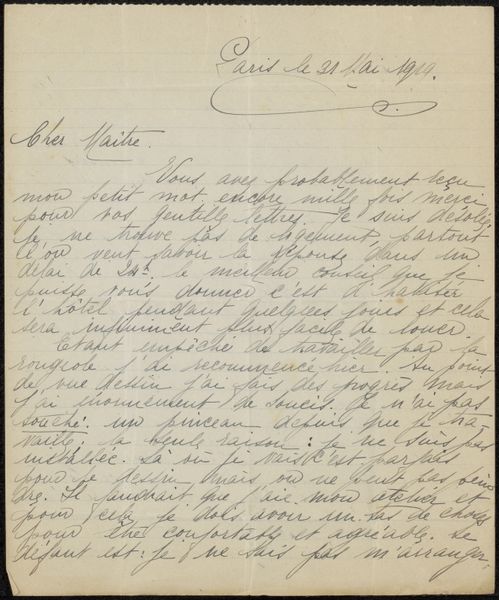 Paris le 31 Mai 1919.
Cher Maître.
Vous avez probablement reçu
mon petit mot encore mille fois merci
pour vos gentille lettres. Je suis désolée
je ne trouve pas de logement, partout
l'on veut savoir la réponse dans un
délai de 24h. le meilleur conseil que je
puisse vous donner c'est d'habiter
l'hôtel pendant quelques jours et cela
sera infiniment plus facile de louer.
Etant empêché de travailler par la
rougeole j'ai recommencé hier. Au point
de vue dessin j'ai fais des progrès mais
j'ai énormement de soucis. Je n'ai pas
touché un pinceau depuis que je tra-
vaille. la seule raison: je ne suis pas
installée. Là où je vais c'est parfait
pour le dessin mais on ne peut pas pein
dre. Il faudrait que j'aie mon atelier et
pour cela je dois avoir un tas de choses
pour être confortable et agréable. Le
défaut est: je ne sais pas m'arranger,